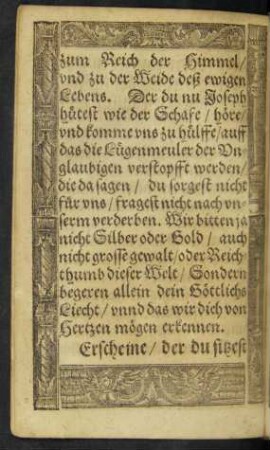 zum Reich der Himmel/
vnd zu der Weide deß ewigen
Lebens. Der du nu Joseph
hütest wie der Schafe / höre/
vnd komme vns zu hülffe/auff
das die Lügenmeuler der Vn
glaubigen verstopfft werden/
die da sagen / du sorgest nicht
für vns / fragest nicht nach vn-
serm verderben. Wir bitten ja
nicht Silber oder Gold / auch
nicht grosse gewalt/oder Reich
thumb dieser Welt / Sondern
begeren allein dein Göttlichs
Liecht / vnnd das wir dich von
Hertzen mögen erkennen.
Erscheine / der du sitzest